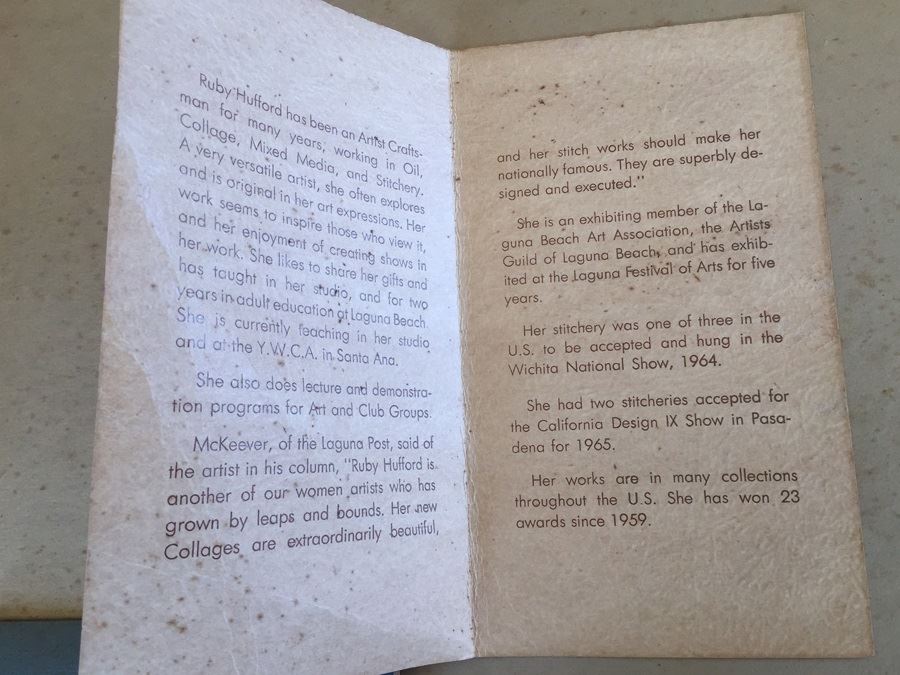 Ruby Hufford has been an Artist Crafts-
man for many years, working in Oil,
Collage, Mixed Media, and Stitchery.
A very versatile artist, she often explores
and is original in her art expressions. Her
work seems to inspire those who view it,
and her enjoyment of creating shows in
her work. She likes to share her gifts and
has taught in her studio, and for two
years in adult education at Laguna Beach.
She is currently teaching in her studio
and at the Y.W.C.A. in Santa Ana.
She also does lecture and demonstra-
tion programs for Art and Club Groups.
McKeever, of the Laguna Post, said of
the artist in his column, "Ruby Hufford is
another of our women artists who has
grown by leaps and bounds. Her new
Collages are extraordinarily beautiful,
and her stitch works should make her
nationally famous. They are superbly de-
signed and executed."
She is an exhibiting member of the La-
guna Beach Art Association, the Artists
Guild of Laguna Beach, and has exhib-
ited at the Laguna Festival of Arts for five
years.
Her stitchery was one of three in the
U.S. to be accepted and hung in the
Wichita National Show, 1964.
She had two stitcheries accepted for
the California Design IX Show in Pasa-
dena for 1965.
Her works are in many collections
throughout the U.S. She has won 23
awards since 1959.